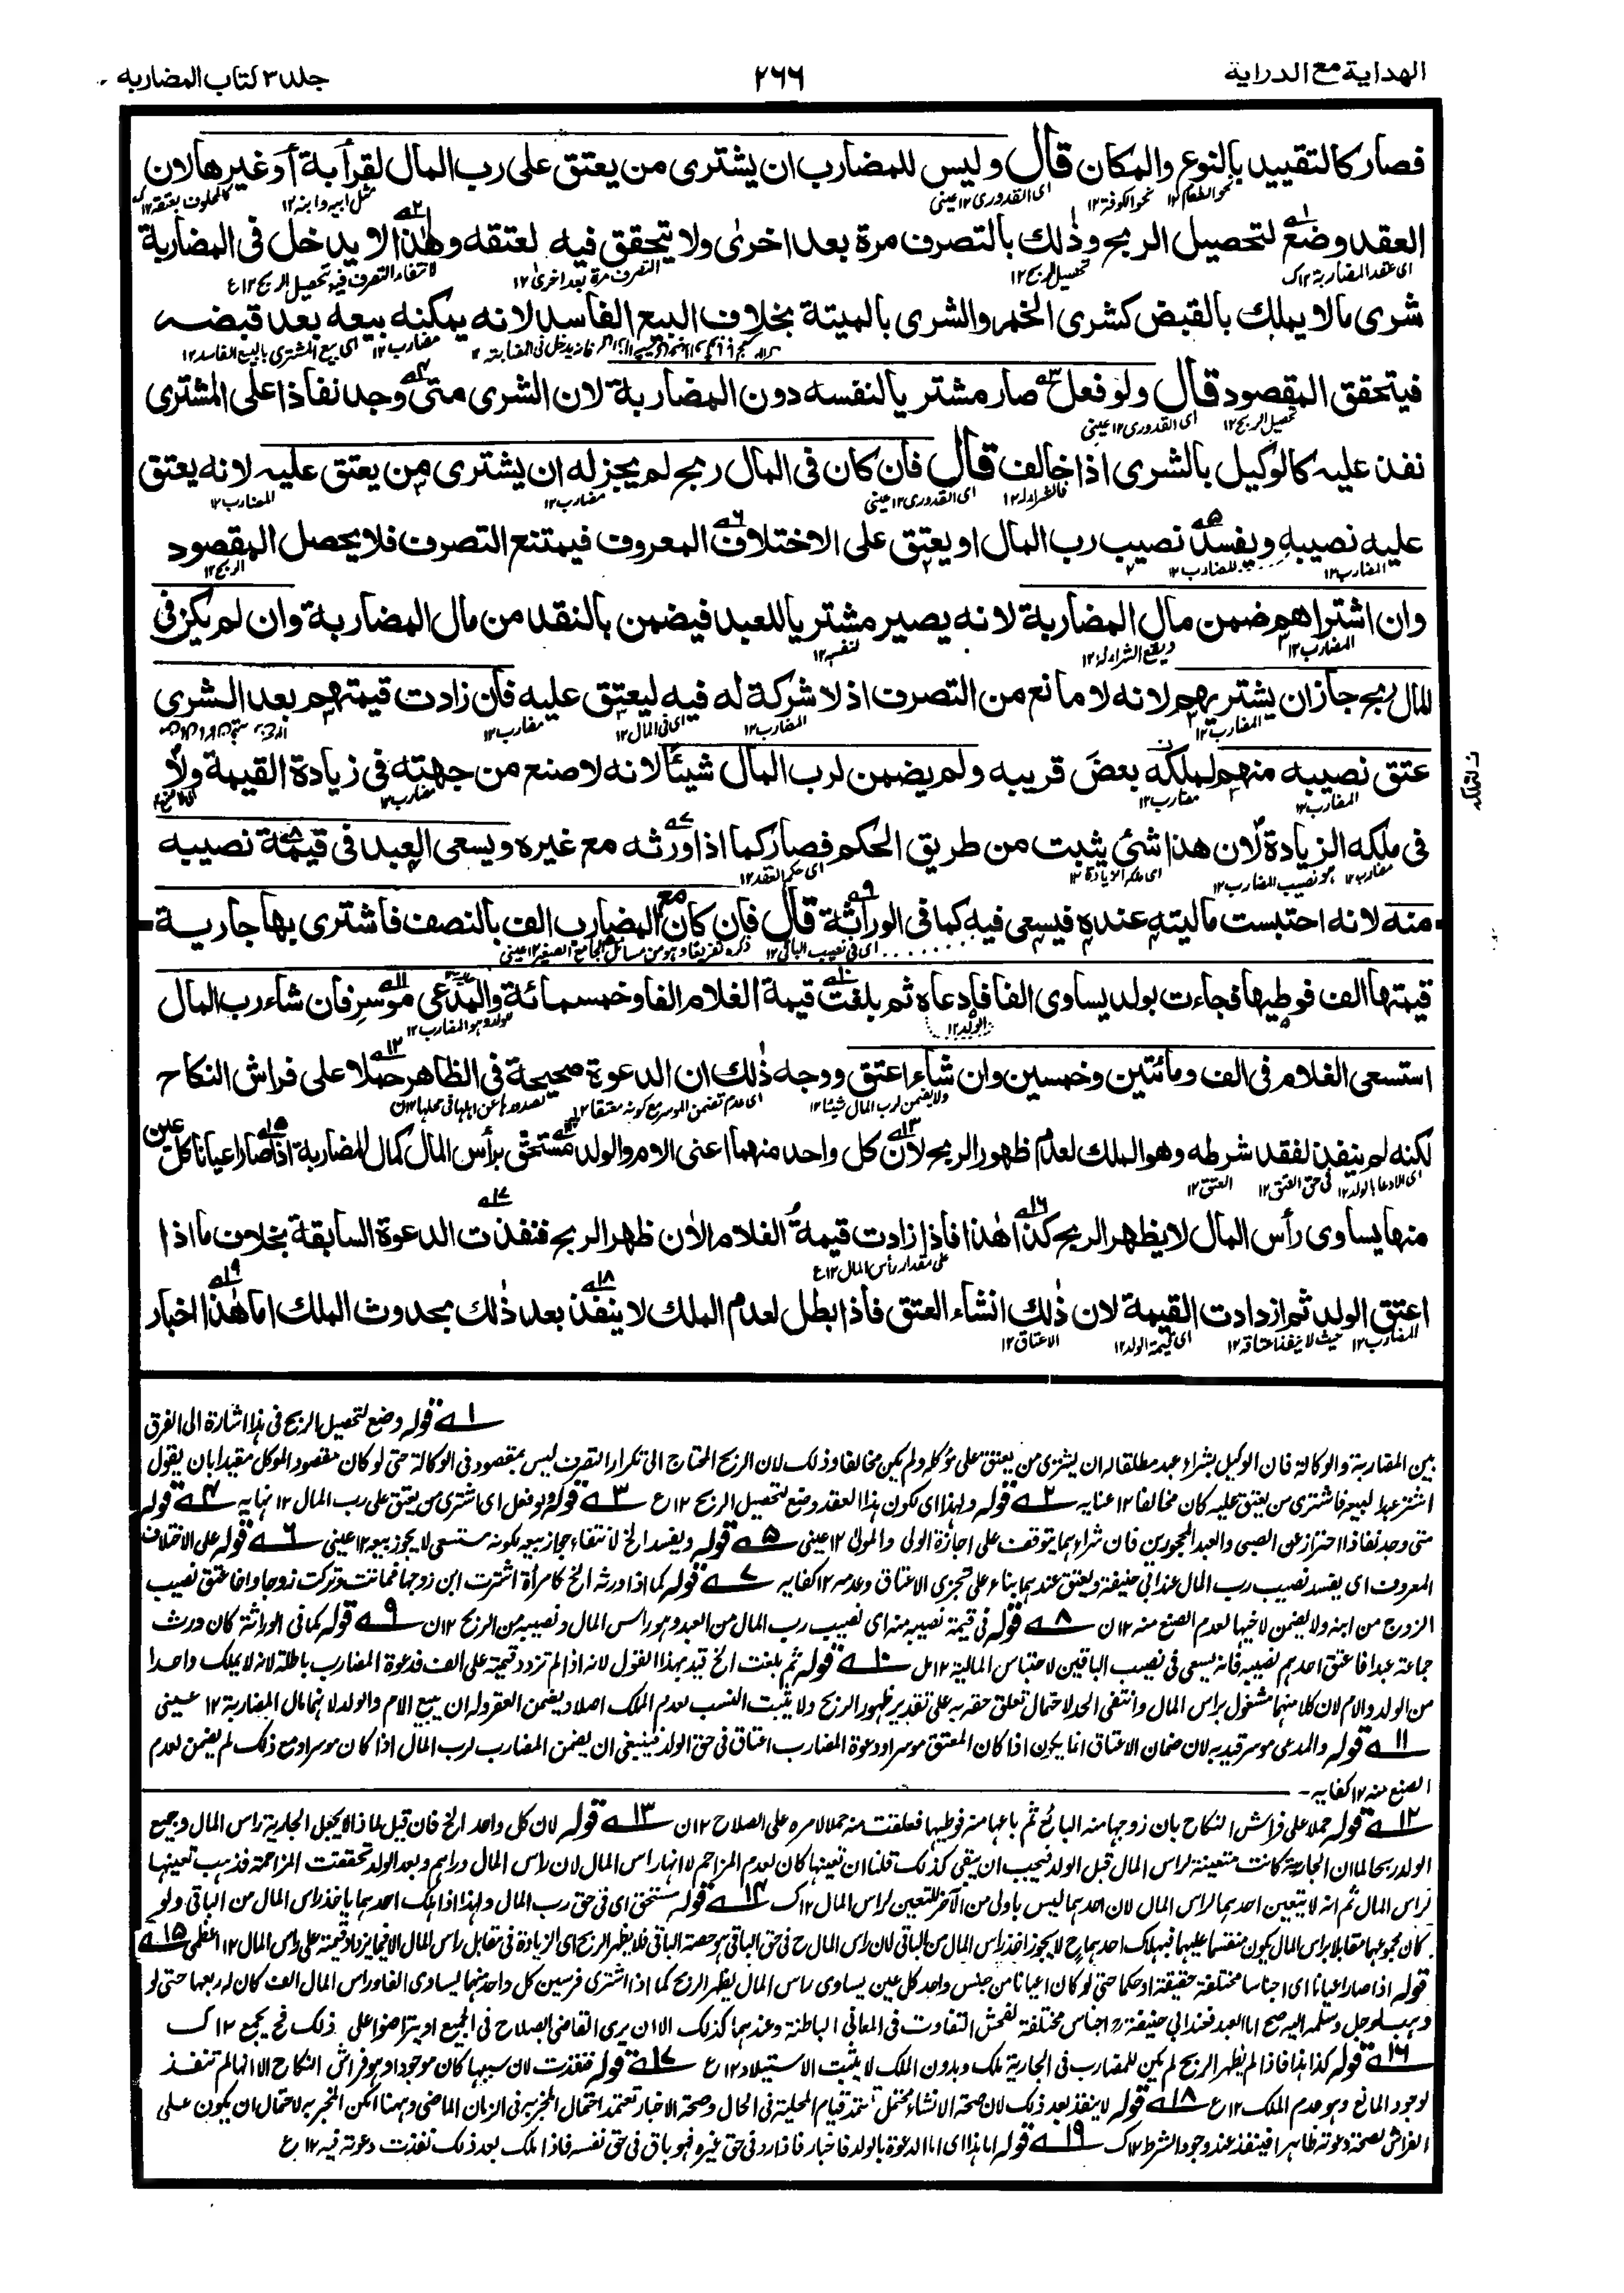 الهداية مع الدراية
٢٦٦
جلد ٣ كتاب المضاربه
فصار كالتقييد بالنوع والمكان قال وليس للمضارب ان يشترى من يعتق على رب المال لقرابة أو غيرها لان
نحو الطعام ١٢ نحو الكوفة ١٢ اى القدورى ١٢ عينى مثل ابيه وابنه ١٢ كالمحلوف بعتقه ١٢ ك
العقد وضع لتحصيل الربح وذلك بالتصرف مرة بعد اخرى ولا يتحقق فيه لعتقه ولهذا لا يدخل فى المضاربة
اى عقد المضاربة ١٢ ك تحصيل الربح ١٢ التصرف مرة بعد اخرى ١٢ لانتفاء التصرف فيه تحصيل الربح ١٢ ع
شرى مالا يملك بالقبض كشرى الخمر والشرى بالميتة بخلاف البيع الفاسد لانه يمكنه بيعه بعد قبضه
فانه يدخل فى المضاربة ١٢ مضارب ١٢ اى بيع المشترى بالبيع الفاسد ١٢
فيتحقق المقصود قال ولو فعل صار مشتريا لنفسه دون المضاربة لان الشرى متى وجد نفاذا على المشترى
تحصيل الربح ١٢ اى القدورى ١٢ عينى
نفذ عليه كالوكيل بالشرى اذا خالف قال فان كان فى المال ربح لم يجز له ان يشترى من يعتق عليه لانه يعتق
فالشراء له ١٢ اى القدورى ١٢ عينى مضارب ١٢ المضارب ١٢
عليه نصيبه ويفسد نصيب رب المال او يعتق على الاختلاف المعروف فيمتنع التصرف فلا يحصل المقصود
المضارب ١٢ للمضارب ١٢ الربح ١٢
وان اشتراهم ضمن مال المضاربة لانه يصير مشتريا للعبد فيضمن بالنقد من مال المضاربة وان لم يكن فى
المضارب ١٢ ويقع الشراء له ١٢ لنفسه ١٢
المال ربح جاز ان يشتريهم لانه لا مانع من التصرف اذ لا شركة له فيه ليعتق عليه فان زادت قيمتهم بعد الشرى
المضارب ١٢ المضارب ١٢ اى فى المال ١٢ مضارب ١٢
عتق نصيبه منهم لملكه بعض قريبه ولم يضمن لرب المال شيئا لانه لا صنع من جهته فى زيادة القيمة ولا
المضارب ١٢ مضارب ١٢ مضارب ١٢ اى لا صنع ١٢
فى ملكه الزيادة لان هذا شئ يثبت من طريق الحكم فصار كما اذا ورثه مع غيره ويسعى العبد فى قيمة نصيبه
مضارب ١٢ هو نصيب المضارب ١٢ اى ملكه الزيادة ١٢ اى حكم العقد ١٢
منه لانه احتبست ماليته عنده فيسعى فيه كما فى الوراثة قال فان كان مع المضارب الف بالنصف فاشترى بها جارية
اى فى نصيب الباقى ١٢ ذكره تفريعا وهو من مسائل الجامع الصغير ١٢ عينى
قيمتها الف فوطيها فجاءت بولد يساوى الفا فادعاه ثم بلغت قيمة الغلام الفا وخمسمائة والمدعى موسر فان شاء رب المال
الولد ١٢ للولد وهو المضارب ١٢
استسعى الغلام فى الف ومائتين وخمسين وان شاء اعتق ووجه ذلك ان الدعوة صحيحة فى الظاهر حملا على فراش النكاح
ولا يضمن لرب المال شيئا ١٢ اى عدم تضمن الموسر مع كونه معتقا ١٢ لصدورها عن اهلها فى محلها ١٢ ن
لكنه لم ينفذ لفقد شرطه وهو الملك لعدم ظهور الربح لان كل واحد منهما اعنى الام والولد مستحق برأس المال كمال المضاربة اذا صار اعيانا كل عين
اى الادعاء بالولد ١٢ فى حق العتق ١٢ العتق ١٢
منها يساوى رأس المال لا يظهر الربح كذا هذا فاذا زادت قيمة الغلام الآن ظهر الربح فنفذت الدعوة السابقة بخلاف ما اذا
على مقدار رأس المال ١٢ ع
اعتق الولد ثم ازدادت القيمة لان ذلك انشاء العتق فاذا بطل لعدم الملك لا ينفذ بعد ذلك بحدوث الملك اما هذا اخبار
المضارب ١٢ حيث لا ينفذ اعتاقه ١٢ اى قيمة الولد ١٢ الاعتاق ١٢
١ـه قوله وضع لتحصيل الربح فى هذا اشارة الى الفرق
بين المضاربة والوكالة فان الوكيل بشراء عبد مطلقا له ان يشترى من يعتق على مؤكله ولم يكن مخالفا وذلك لان الربح المحتاج الى تكرار التصرف ليس بمقصود فى الوكالة حتى لو كان مقصود الموكل مقيدا بان يقول
اشتر عبدا لبيعه فاشترى من يعتق عليه كان مخالفا ١٢ عنايه ٢ـه قوله ولهذا اى بكون هذا العقد وضع لتحصيل الربح ١٢ ع ٣ـه قوله ولو فعل اى اشترى من يعتق على رب المال ١٢ نهايه ٤ـه قوله
متى وجد نفاذا احتراز عن الصبى والعبد المحجورين فان شراءهما يتوقف على اجازة الولى والمولى ١٢ عينى ٥ـه قوله ويفسد الخ لانتفاء جواز بيعه بكونه مستسعى لا يجوز بيعه ١٢ عينى ٦ـه قوله على الاختلاف
المعروف اى يفسد نصيب رب المال عند ابى حنيفة ويعتق عندهما بناء على تجزى الاعتاق وعدمه ١٢ كفايه ٧ـه قوله كما اذا ورثه الخ كامرأة اشترت ابن زوجها فماتت وتركت زوجا واخا عتق نصيب
الزوج من ابنه ولا يضمن لاخيها لعدم الصنع منه ١٢ ن ٨ـه قوله فى قيمة نصيبه منه اى نصيب رب المال من العبد وهو راس المال ونصيبه من الربح ١٢ ن ٩ـه قوله كما فى الوراثة كان ورث
جماعة عبدا فاعتق احدهم نصيبه فانه يسعى فى نصيب الباقين لاحتباس المالية ١٢ مل ١٠ـه قوله ثم بلغت الخ قيد بهذا القول لانه اذا لم تزد قيمته على الف فدعوة المضارب باطلة لانه لا يملك واحدا
من الولد والام لان كلا منهما مشغول براس المال وانتفى الحد لاحتمال تعلق حقه به على تقدير ظهور الربح ولا يثبت النسب لعدم الملك اصلا ويضمن العقر وله ان يبيع الام والولد لانهما مال المضاربة ١٢ عينى
١١ـه قوله والمدعى موسر قيد به لان ضمان الاعتاق انما يكون اذا كان المعتق موسرا ودعوة المضارب اعتاق فى حق الولد فينبغى ان يضمن المضارب لرب المال اذا كان موسرا ومع ذلك لم يضمن لعدم
الصنع منه ١٢ كفايه
١٢ـه قوله حملا على فراش النكاح بان زوجها منه البائع ثم باعها منه فوطيها فعلقت منه حملا لامره على الصلاح ١٢ ن ١٣ـه قوله لان كل واحد الخ فان قيل لماذا لا يجعل الجارية راس المال وجميع
الولد ربحا لما ان الجارية كانت متعينة لراس المال قبل الولد فيجب ان يبقى كذلك قلنا ان تعينها كان لعدم المزاحم لا انها راس المال لان راس المال دراهم وبعد الولد تحققت المزاحمة فذهب تعينها
لراس المال ثم انه لا يتعين احدهما لراس المال لان احدهما ليس باولى من الآخر للتعين لراس المال ١٢ ك ١٤ـه قوله مستحق اى فى حق رب المال ولهذا اذا هلك احدهما ياخذ راس المال من الباقى ولو
كان مجموعهما مقابلا براس المال يكون منقسما عليهما فبهلاك احدهما ح لا يجوز اخذ راس المال من الباقى لان راس المال ح فى حق الباقى هو حصة الباقى فلا يظهر الربح اى الزيادة فى مقابل راس المال الا فيما يزداد قيمته على راس المال ١٢ اعظمى ١٥ـه
قوله اذا صار اعيانا اى اجناسا مختلفة حقيقة او حكما حتى لو كان اعيانا من جنس واحد كل عين يساوى راس المال يظهر الربح كما اذا اشترى فرسين كل واحد منهما يساوى الفا وراس المال الف كان له ربعها حتى لو
وهبه لرجل وسلمه اليه صح اما العبد فعند ابى حنيفة رح اجناس مختلفة لفحش التفاوت فى المعانى الباطنة وعندهما كذلك الا ان يرى القاضى الصلاح فى الجميع او يتراضوا على ذلك فح يجمع ١٢ ك
١٦ـه قوله كذا هذا فاذا لم يظهر الربح لم يكن للمضارب فى الجارية ملك وبدون الملك لا يثبت الاستيلاد ١٢ ع ١٧ـه قوله فنفذت لان سببها كان موجودا وهو فراش النكاح الا انها لم تنفذ
لوجود المانع وهو عدم الملك ١٢ ع ١٨ـه قوله لا ينفذ بعد ذلك لان صحة الانشاء تعتمد قيام المحلية فى الحال وصحة الاخبار تعتمد احتمال المخبر به فى الزمان الماضى وههنا امكن المخبر به لاحتمال ان يكون على
الفراش لصحة دعوته ظاهرا فينفذ عند وجود الشرط ١٢ ك ١٩ـه قوله اما هذا اى اما الدعوة بالولد فاخبار فاذا رد فى حق غيره فهو باق فى حق نفسه فاذا ملك بعد ذلك نفذت دعوته فيه ١٢ ع